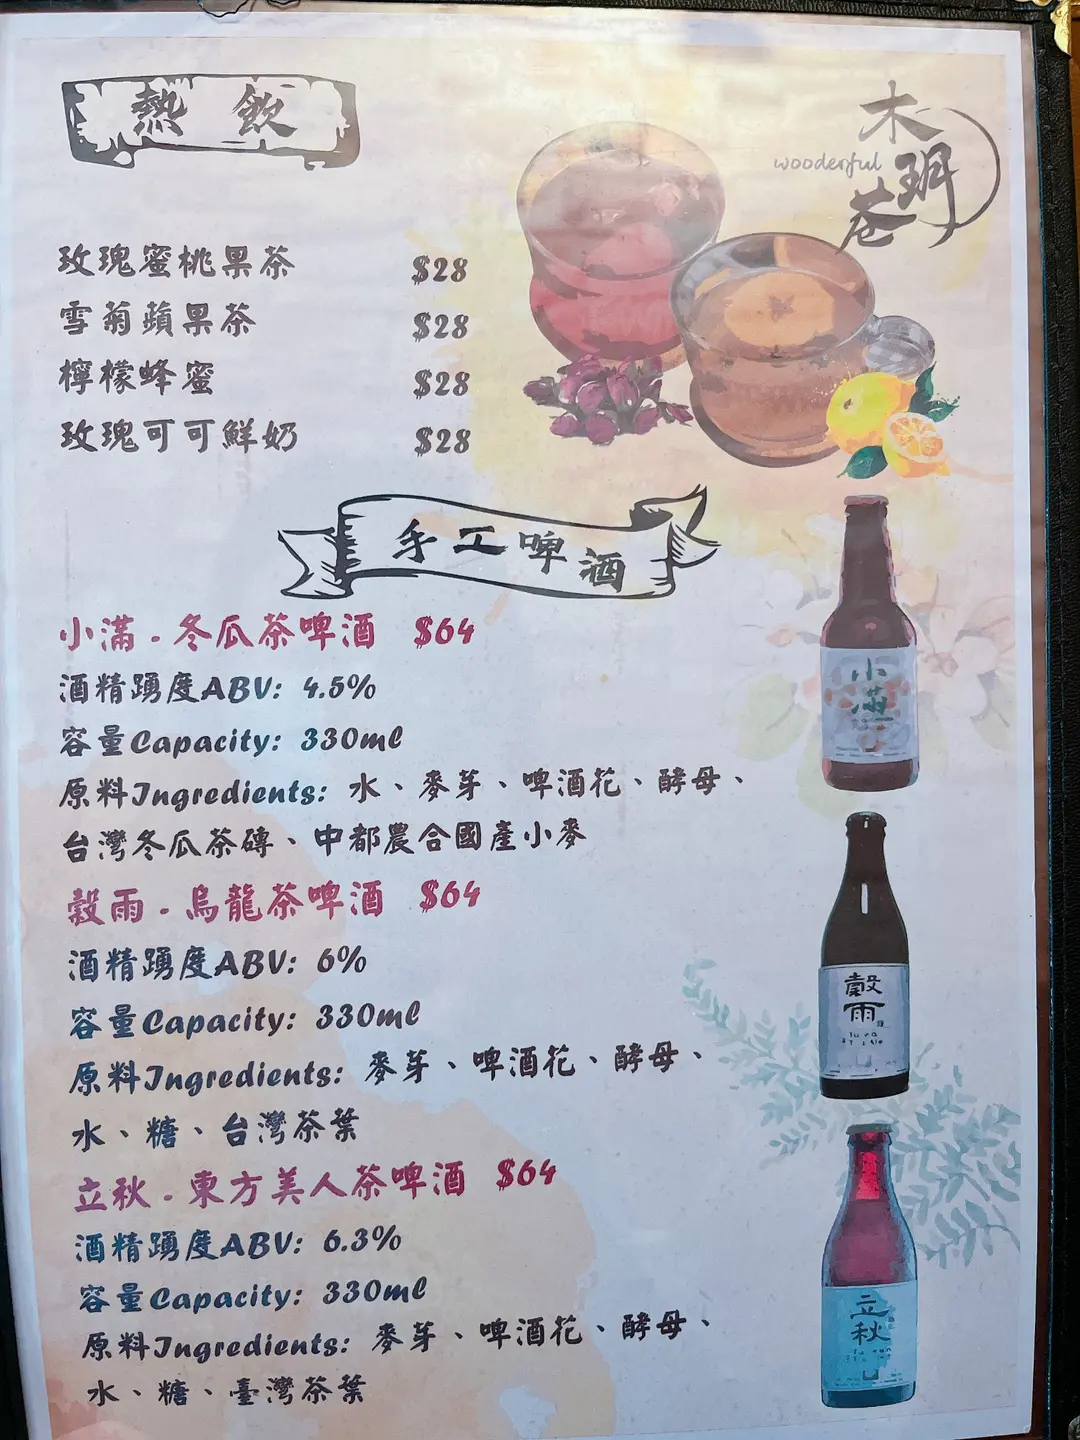 熱 飲
木
wooderful
玥
巷
玫瑰蜜桃果茶 $28
雪菊蘋果茶 $28
檸檬蜂蜜 $28
玫瑰可可鮮奶 $28
手工啤酒
小滿 . 冬瓜茶啤酒 $64
酒精踴度ABV: 4.5%
容量Capacity: 330ml
原料Ingredients: 水、麥芽、啤酒花、酵母、
台灣冬瓜茶磚、中都農合國產小麥
穀雨 . 烏龍茶啤酒 $64
酒精踴度ABV: 6%
容量Capacity: 330ml
原料Ingredients: 麥芽、啤酒花、酵母、
水、糖、台灣茶葉
立秋 . 東方美人茶啤酒 $64
酒精踴度ABV: 6.3%
容量Capacity: 330ml
原料Ingredients: 麥芽、啤酒花、酵母、
水、糖、臺灣茶葉
小滿
穀雨
立秋